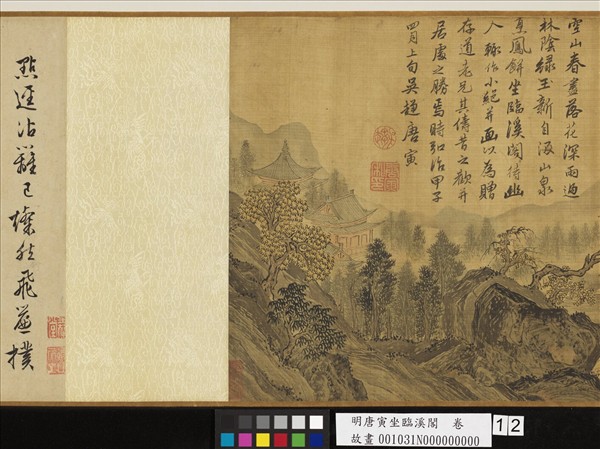 空山春盡落花深雨過
林陰綠玉新自汲山泉
烹鳳餅坐臨溪閣待幽
人輒作小絕并画以為贈
存道老兄其儔昔之歡并
居處之勝焉時弘治甲子
四月上旬吳趨唐寅
點逕沾籬已燦然飛 撲
明唐寅坐臨溪閣 卷
故畫 001031N000000000
12